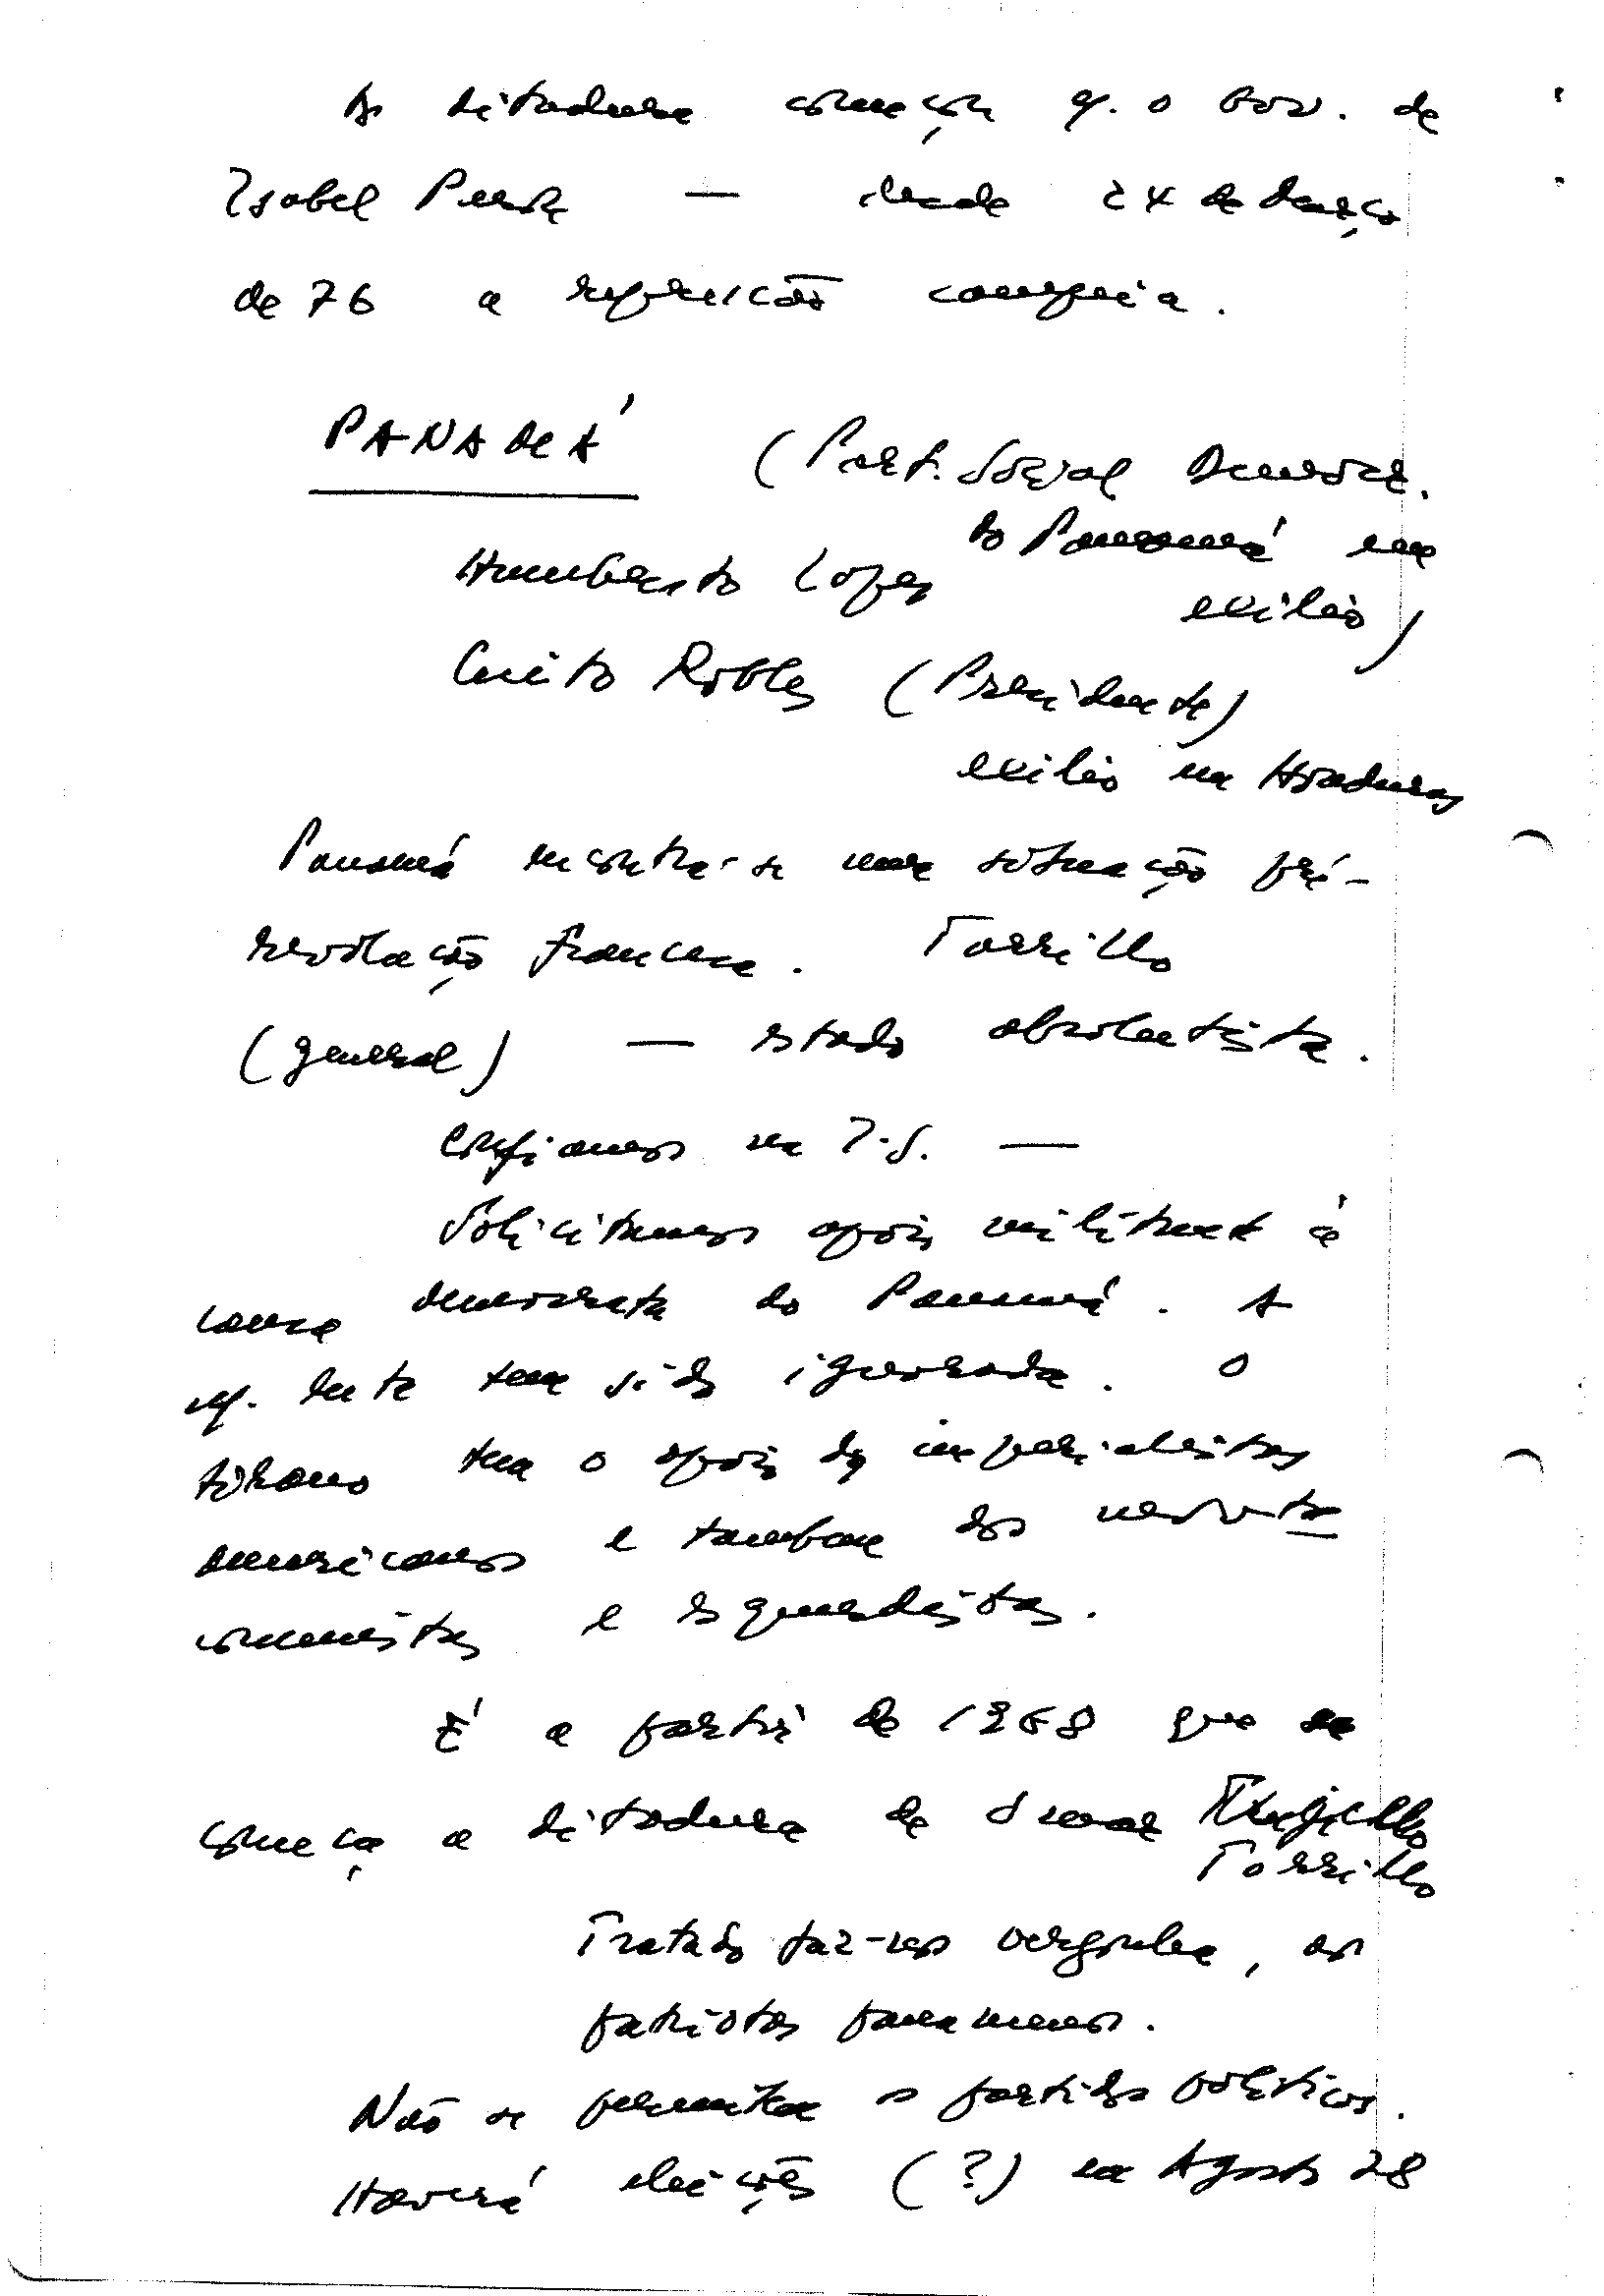 A ditadura começou q. o Gov. de
Isabel Perón — desde 24 de Março
de 76 a repressão começa.
PANAMÁ (Part. Social Democr.
do Panamá em
exílio)
Humberto Lopes
Cuito Robles (Presidente)
exílio na Honduras
Panamá encontra-se numa situação pré-
revolução francesa. Torrillo
(general) — estado absolutista.
Confiamos na I.S. —
Solicitamos apoio militante à
causa democrata do Panamá. A
n/. luta tem sido ignorada. O
tirano tem o apoio dos imperialistas
americanos e também dos
comunistas e esquerdistas.
É a partir de 1968 que se
começa a ditadura de Omar Trujillo
Torrillo
Tratado faz-nos vergonha, aos
patriotas panamenos.
Não se permitem os partidos políticos.
Haverá eleições (?) em Agosto 78